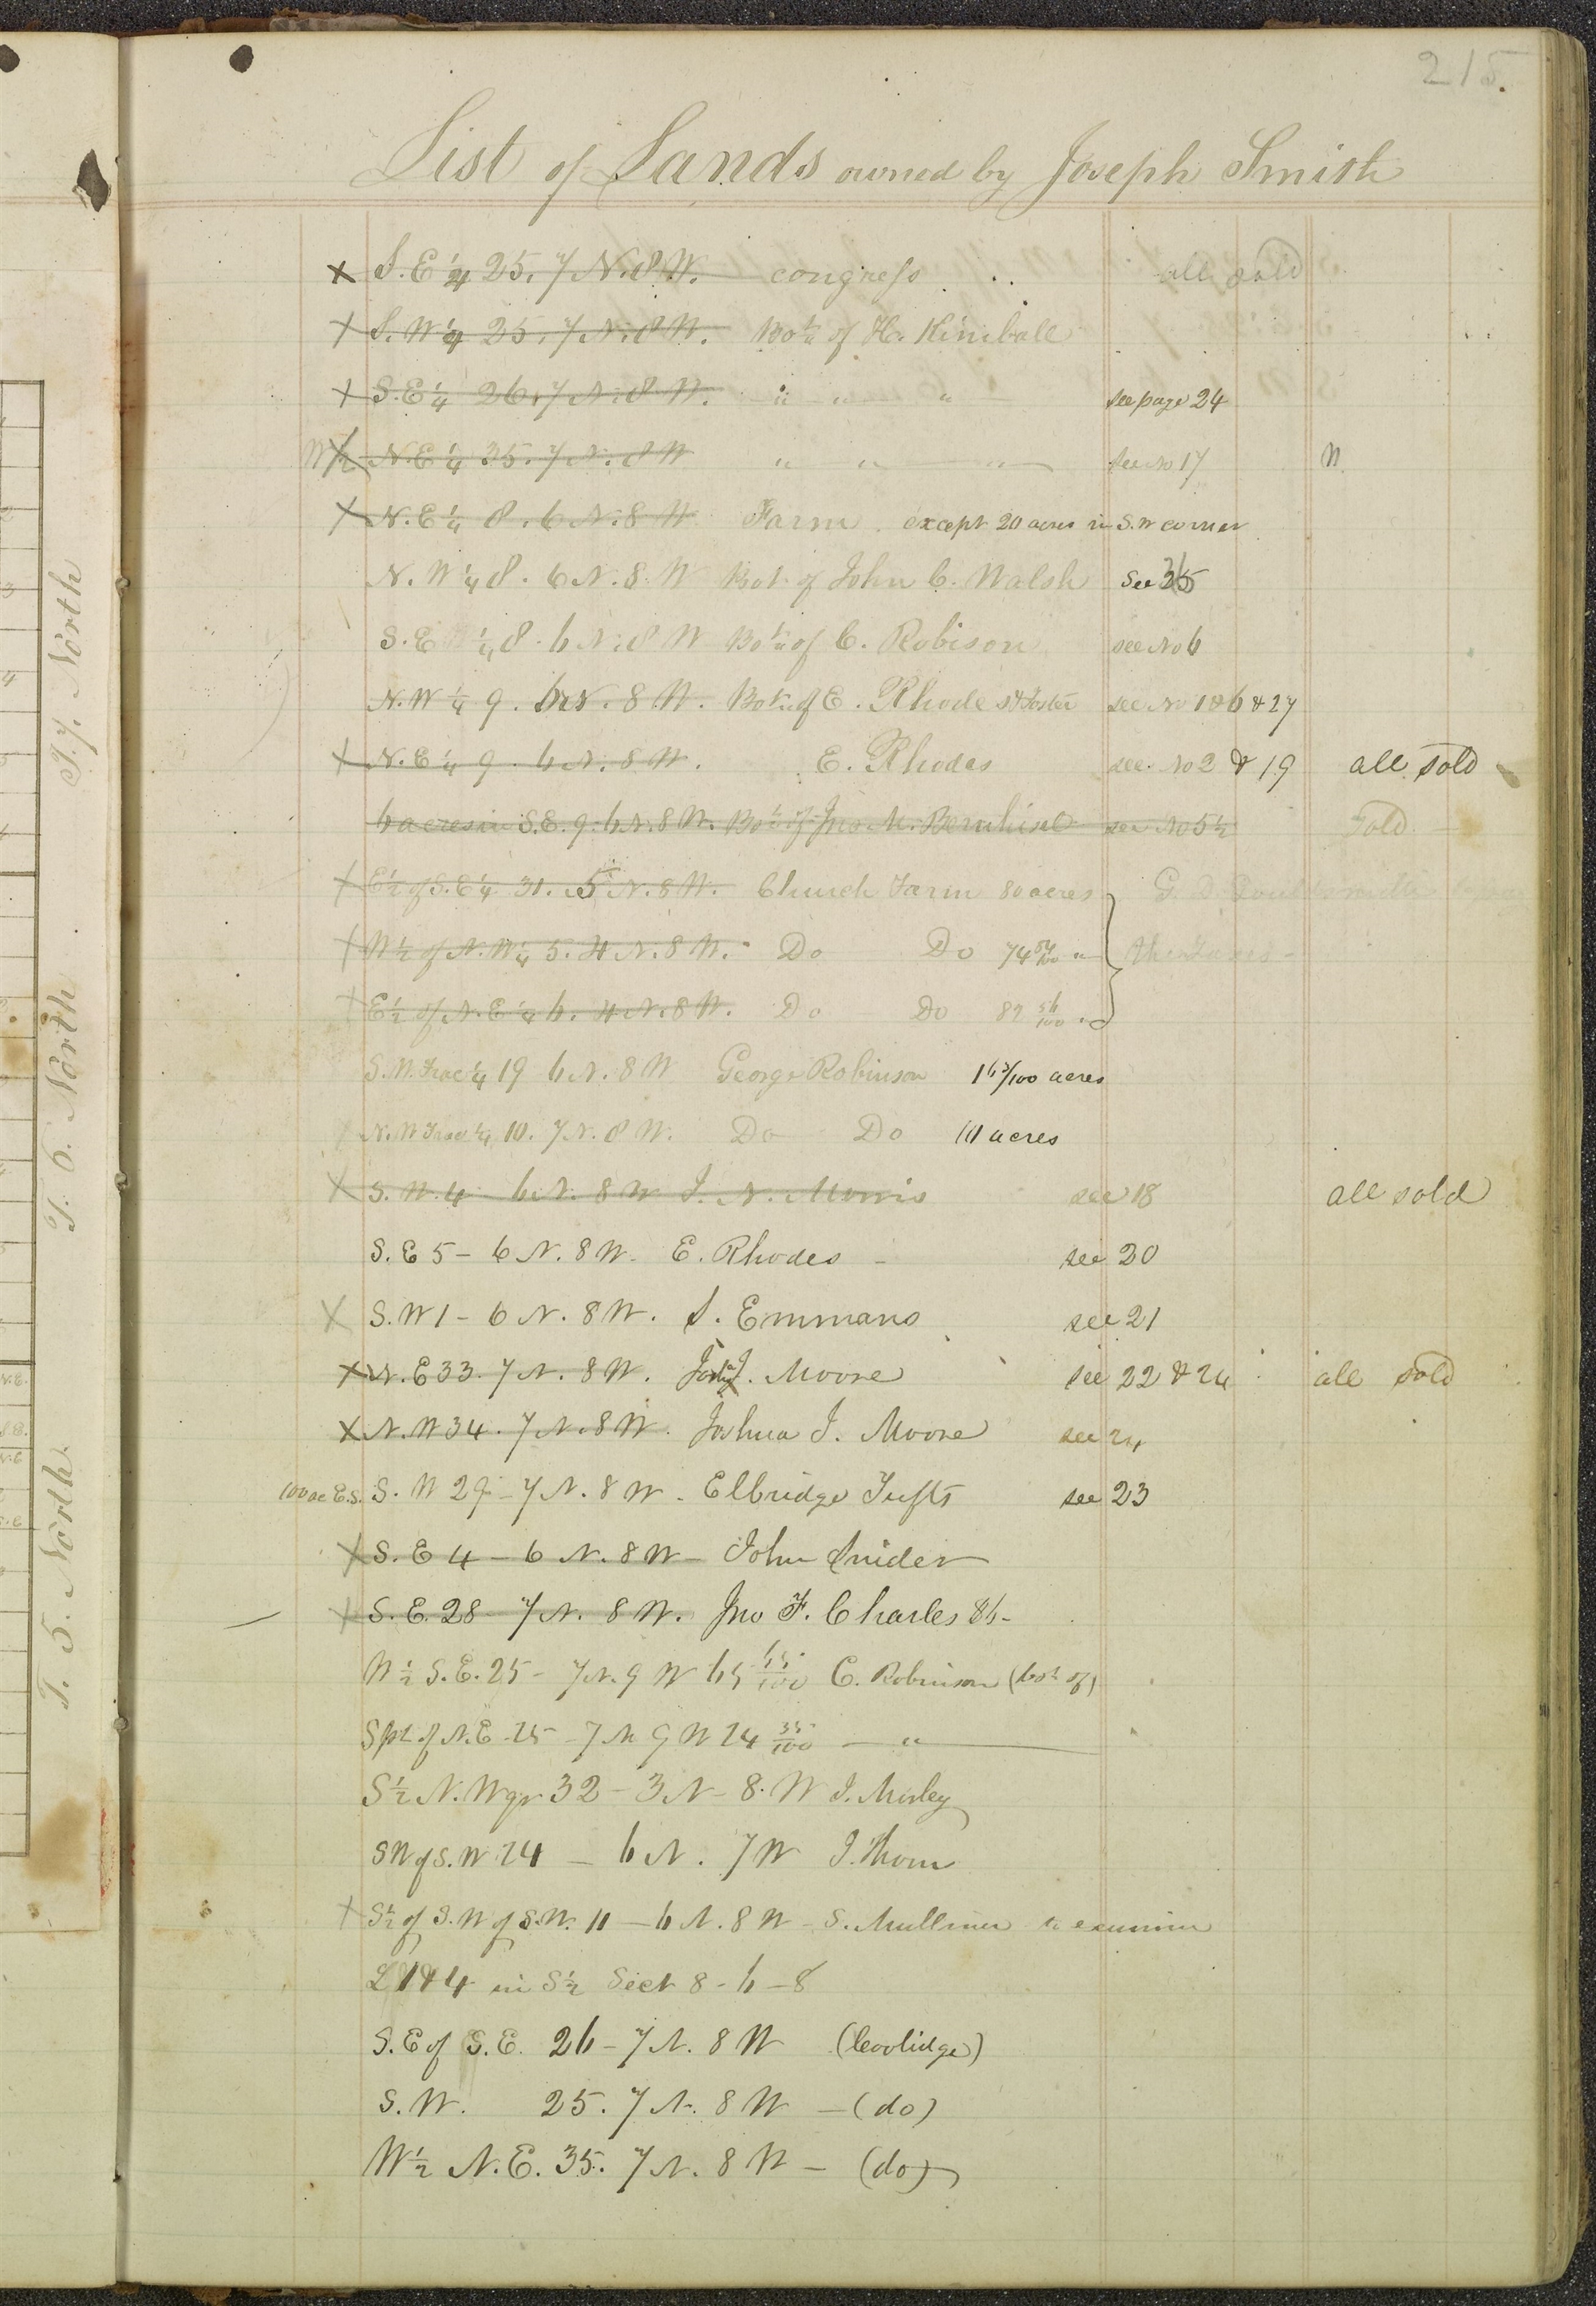 215.
List of Lands owned by Joseph Smith
x S.E ¼ 25. 7 N. 8 W. congress all sold
x S. W ¼ 25. 7 N. 8 W. Bot of H. Kimball
x S.E ¼ 26. 7 N. 8 W. " " " see page 24
W ½ N.E ¼ 35. 7 N. 8 W " " " see No 17 N.
x N.E ¼ 8. 6 N. 8 W Farm except 20 acres in S.W corner
N. W ¼ 8. 6 N. 8 W Bot of John C. Walsh See
S.E ¼ 8. 6 N. 8 W Bot of C. Robison see No 6
N. W ¼ 9. 6 N. 8 W. Bot of E. Rhodes & Foster see No 1 & 6 & 27
x N.E ¼ 9. 6 N. 8 W. E. Rhodes see No 2 & 19 all sold
6 acres in S.E. 9. 6 N. 8 W. Bot of Jno M. Bernhisel see No 5 ½ Sold
x E ½ of S.E ¼ 31. 5 N. 8 W. Church Farm 80 acres G. D.
x W ½ of N. W ¼ 5. 4 N. 8 W. Do Do 74 "  the Taxes -
x E ½ of N. E ¼ 6. 4 N. 8 W. Do Do 82 56/100 "
S. W. Frac ¼ 19 6 N. 8 W George Robinson acres
x N. W Frac ¼ 10. 7 N. 8 W. Do Do acres
x S. W. 4 - 6 N. 8 W I. N. Morris see 18 all sold
S. E 5 - 6 N. 8 W. E. Rhodes - see 20
x S. W 1 - 6 N. 8 W. S. Emmans see 21
x N. E 33. 7 N. 8 W. J. Moore see 22 & 24 all sold
x N. W 34. 7 N. 8 W. Joshua J. Moore see 24
100 ac E.S. S. W 29 - 7 N. 8 W. Elbridge Tufts see 23
x S. E 4 - 6 N. 8 W - John Snider
x S. E. 28 - 7 N. 8 W. Jno F. Charles 86 -
W ½ S. E. 25 - 7 N. 9 W 65 65/100 C. Robinson (bot of)
S pt of N. E 25 - 7 N 9 W 24 35/100 - "
S ½ N. W qr 32 - 3 N - 8. W I. Morley
SW of S. W 24 - 6 N. 7 W
x S ½ of S. W of S.W. 11 - 6 N. 8 W - S. Mulliner to examine
L 1 & 4 in S ½ Sect 8 - 6 - 8
S. E of S. E. 26 - 7 N. 8 W (Coolidge)
S. W. 25. 7 N. 8 W - (do)
W ½ N. E. 35. 7 N. 8 W - (do)
T. 7. North
T. 6. North
T. 5. North